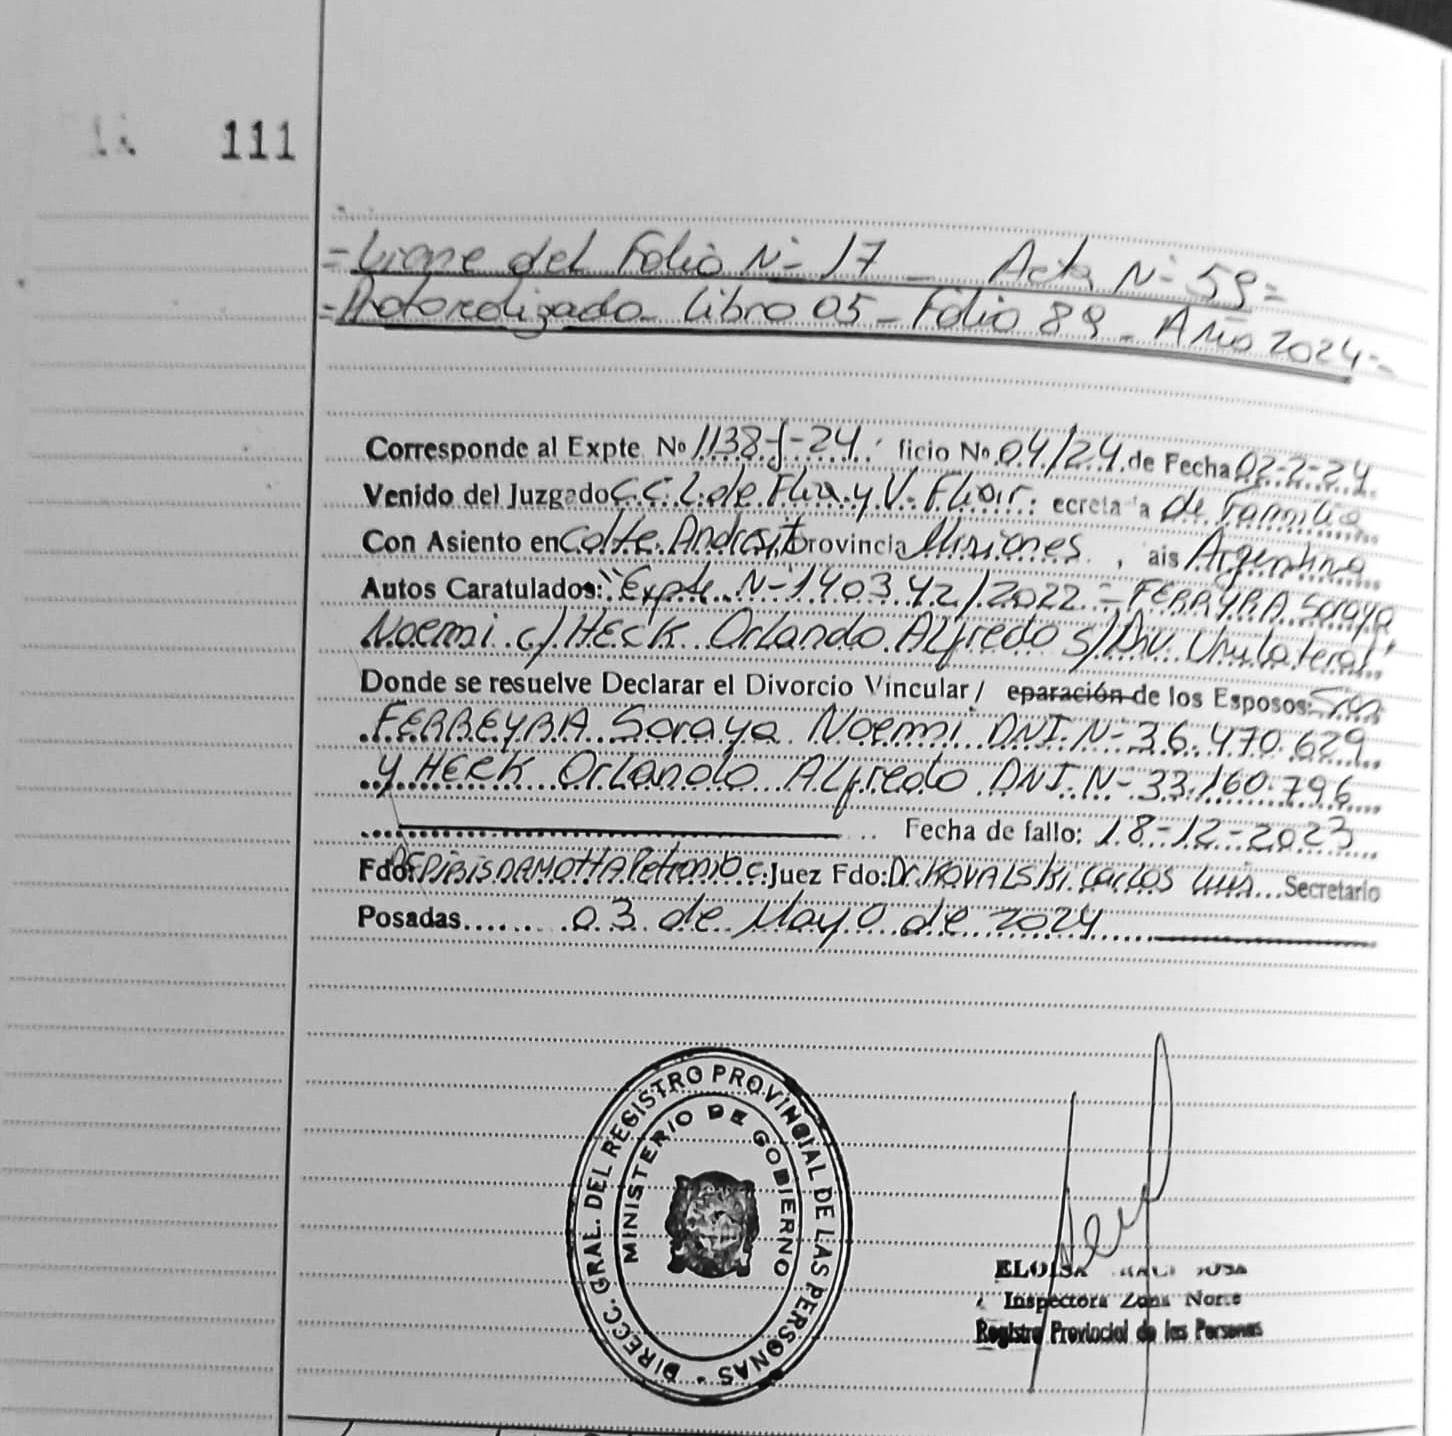 111
=Viene del Folio N- 17 - Acta N- 59=
=Protocolizado Libro 05 - Folio 89 - Año 2024-
Corresponde al Expte No 1138-J-24. ficio No. 04/24 de Fecha 02-2-24
Venido del Juzgado C.C.L. de Flia. y V. Fliar. ecreta a de Familia
Con Asiento en Cdte. Andresito rovincia Misiones , ais Argentina
Autos Caratulados: "Expte. N- 140342/2022 - FERRYRA Soraya
Noemi c/ HECK Orlando Alfredo s/ Div. Unilateral"
Donde se resuelve Declarar el Divorcio Vincular/ eparación de los Esposos:
FERREYRA Soraya Noemi DNI. N- 36.470.629
y HECK Orlando Alfredo DNI. N- 33.160.796
Fecha de fallo: 18-12-2023
Fdo: DA MOTTA Petronio C. Juez Fdo: Dr. KOVALSKI Carlos Luis Secretario
Posadas 03 de Mayo de 2024
DIRECC. GRAL. DEL REGISTRO PROVINCIAL DE LAS PERSONAS
MINISTERIO DE GOBIERNO
ELOISA
Inspectora Zona Norte
Registro Provincial de las Personas